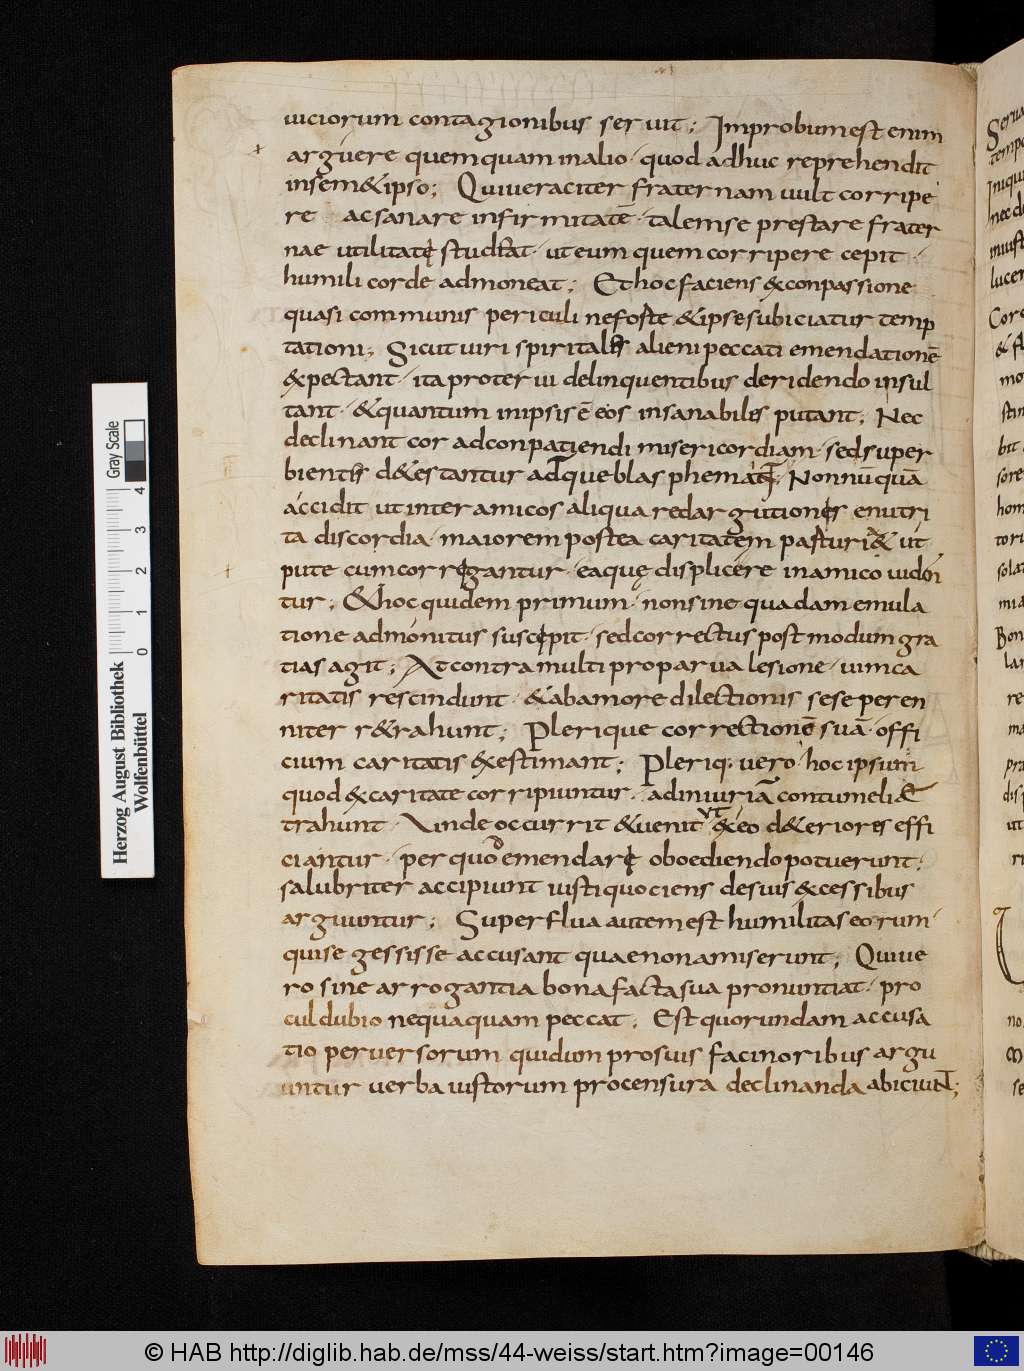 uiciorum contagionibus seruit; Improbum est enim
arguere quemquam in alio · quod adhuc reprehendit
in sem&ipso; Qui ueraciter fraternam uult corripe
re ac sanare infirmitatē · talem se prestare frater
nae utilitati studeat · ut eum quem corripere cepit ·
humili corde admoneat; Et hoc faciens &conpassione
quasi communis periculi ne forte &ipse subiciatur temp
tationi; Sicut uiri spiritales alieni peccati emendationē
&pectant · ita proterui delinquentibus deridendo insul
tant · &quantum in ipsis ē eos insanabiles putant; Nec
declinant cor ad conpatiendi misericordiam · sed super
bientes d&estantur adque blasphemant; Nonnūquā
accidit ut inter amicos aliqua redargutiones enutri
ta discordia · maiorem postea caritatem pasturi& ut
pute cum corregantur · eaquę displicere in amico uidēn
tur; &hoc quidem primum · non sine quadam emula
tione admonitus suscepit · sed correctus postmodum gra
tias agit; At contra multi pro parua lesione · uim ca
ritatis rescindunt · &ab amore dilectionis sese peren
niter r&rahunt; Plerique correctionē suā · offi
cium caritatis &estimant; Pleriq· uero · hoc ipsum
quod &caritate corripiuntur · ad iniuriā contumeliae
trahunt · Vnde occurrit &uenit ut &eo d&eriores effi
ciantur · per quod emendari oboediendo potuerunt;
salubriter accipiunt iusti quociens de suis &cessibus
arguuntur; Superflua autem est humilitas eorum ·
qui se gessisse accusant quae non amiserunt; Qui ue
ro sine arrogantia bona facta sua pronuntiat · pro
cul dubio nequaquam peccat; Est quorundam accusa
tio peruersorum qui dum pro suis facinoribus argu
untur uerba iustorum pro censura declinanda abiciunt;
Herzog August Bibliothek
Wolfenbüttel
0 1 2 3 4
Gray Scale
© HAB http://diglib.hab.de/mss/44-weiss/start.htm?image=00146